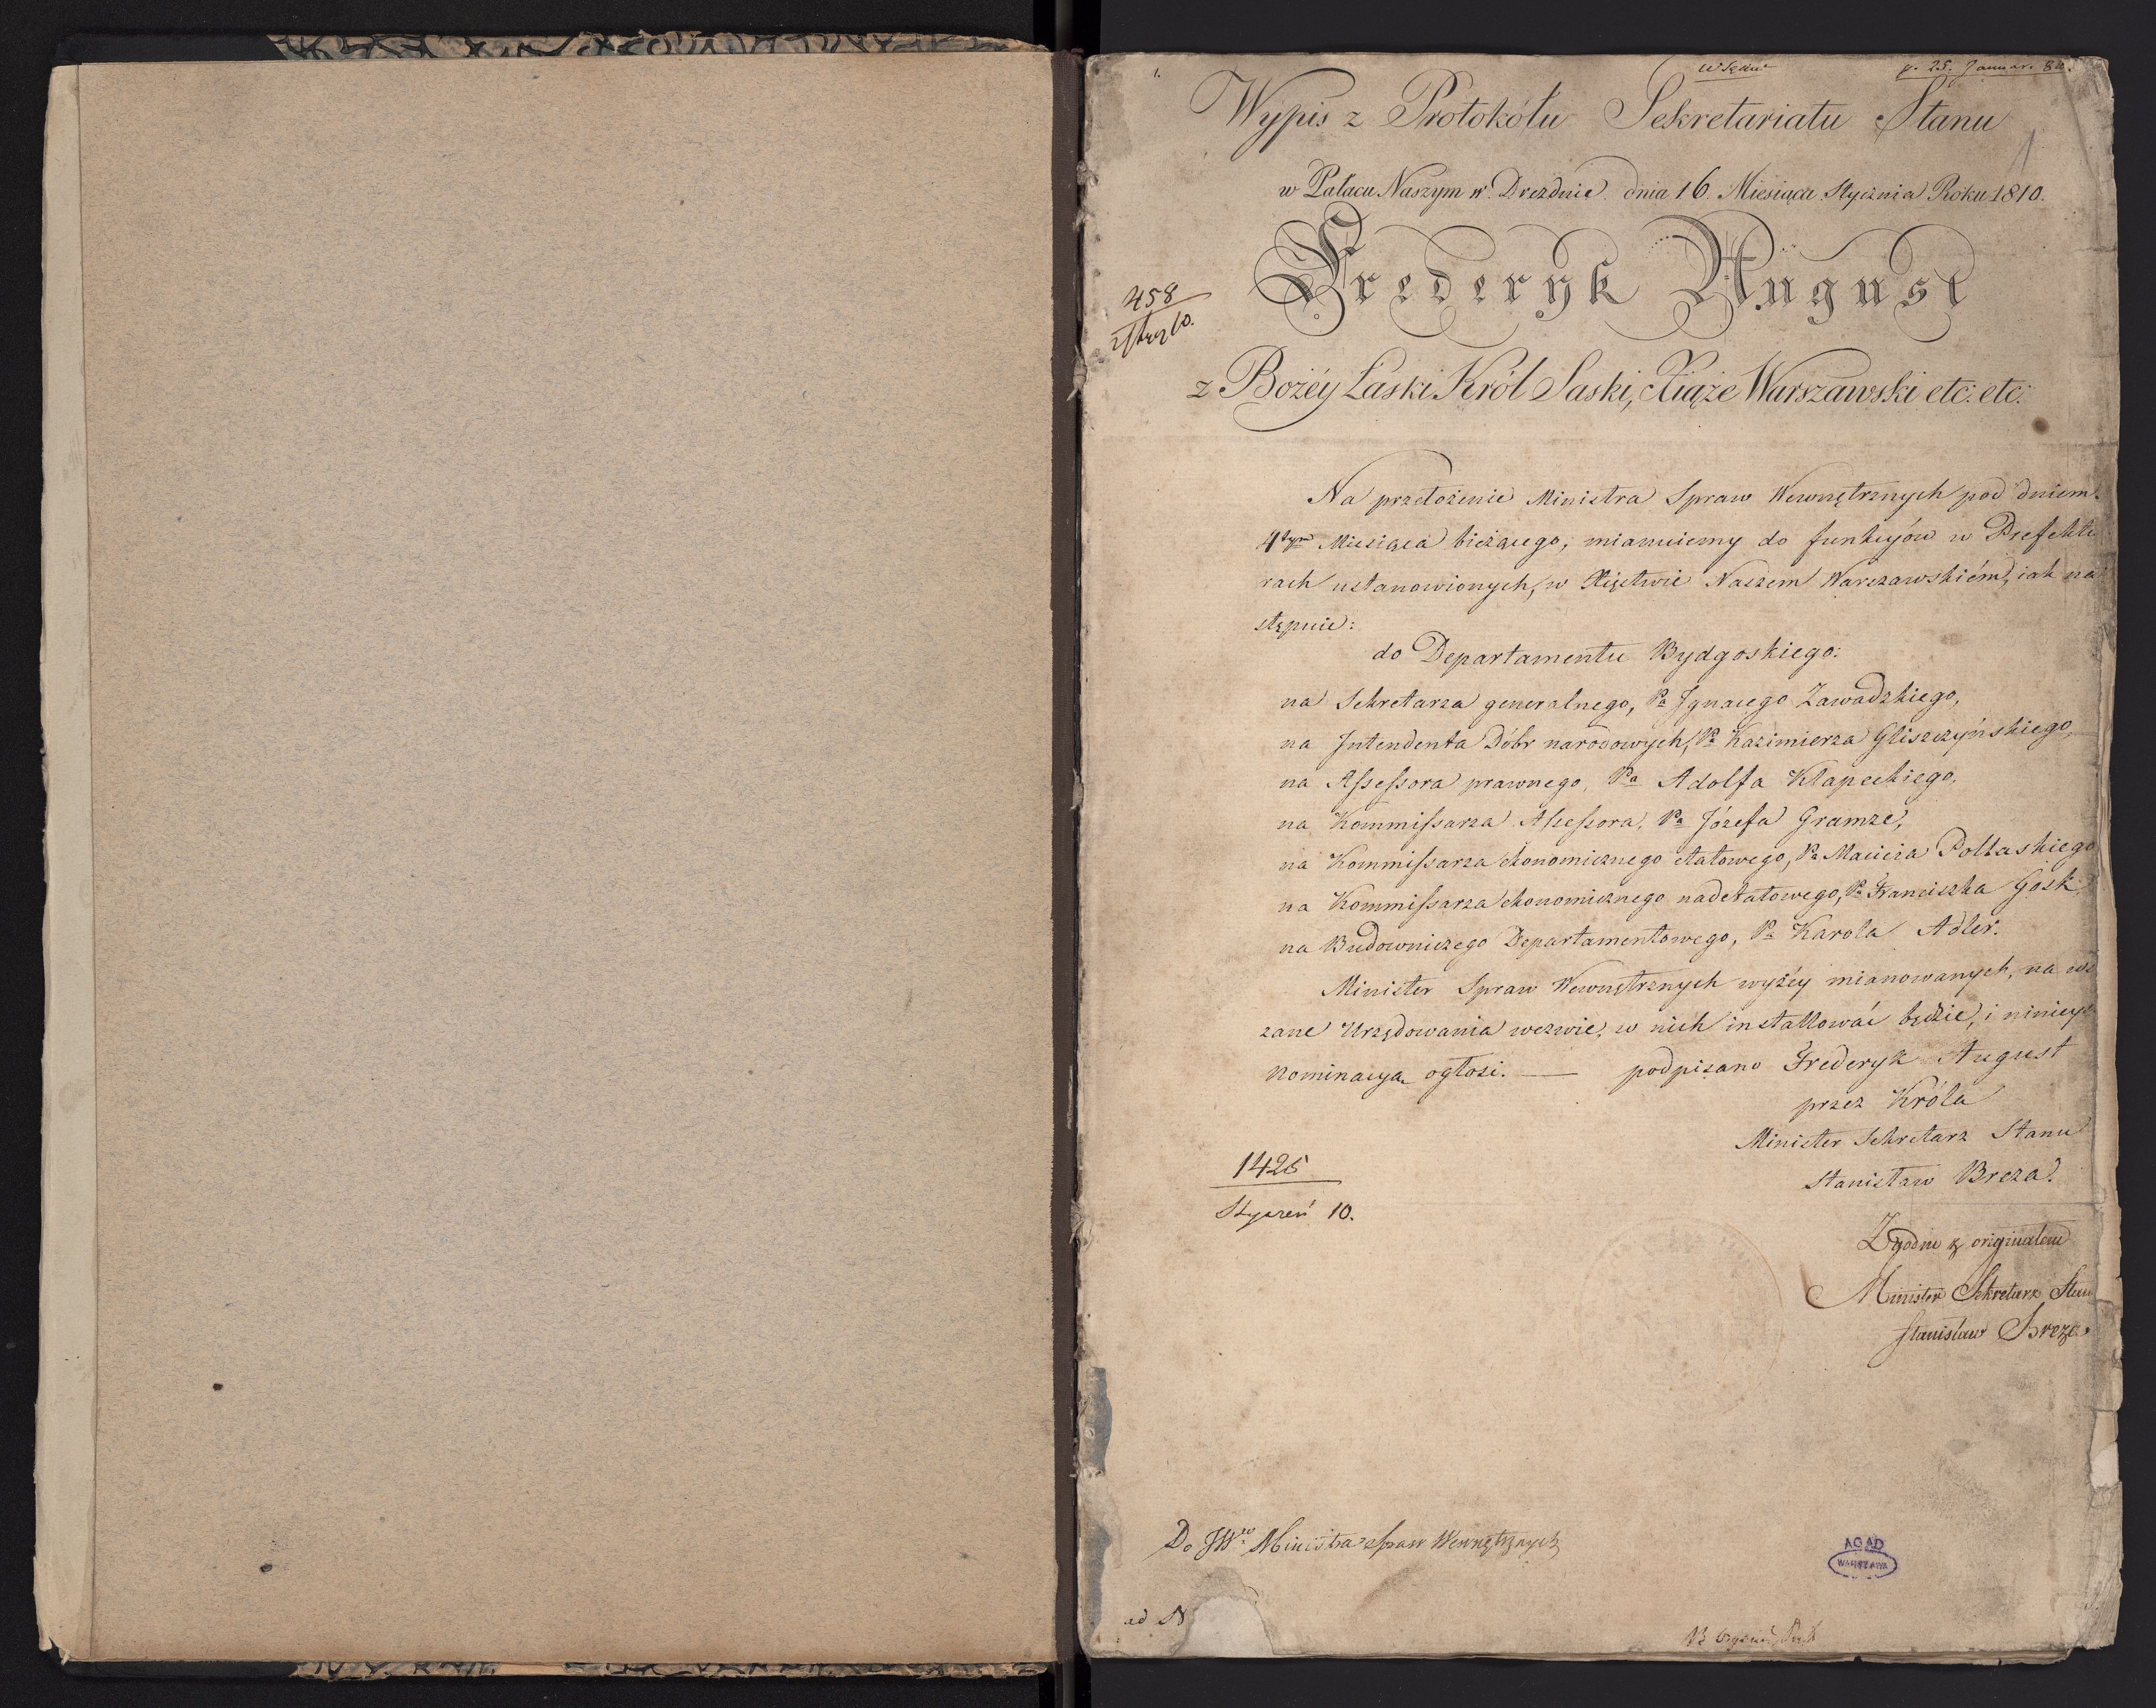 1.
p. 25. Januar. 810.
Wÿpis z Protokółu Sekretariatu Stanu
1
w Pałacu Naszym w Dreznie dnia 16. Miesiąca Stycznia Roku 1810.
Frederyk August
458
z Bożéy Łaski Król Saski, Xiąże Warszawski etc: etc:
Na przełożenie Ministra Spraw Wewnętrznych pod dniem
4tym Miesiąca bieżącego, mianuiemy do funkcyów w Prefektu
rach ustanowionych, w Xięstwie Naszem Warszawskiém, iak na
stępuie:
do Departamentu Bydgoskiego:
na Sekretarza generalnego, Pa Ignacego Zawadzkiego,
na Intendenta Dóbr narodowych, Pa Kazimierza Gliszczyńskiego,
na Assessora prawnego, Pa Adolfa Kłapeckiego,
na Kommissarza Assessora, Pa Józefa Gramze,
na Kommissarza ekonomicznego etatowego, Pa Macieia Pollaskiego
na Kommissarza ekonomicznego nadetatowego, Pa Franciszka Gosk
na Budowniczego Departamentowego, Pa Karola Adler.
Minister Spraw Wewnętrznych wyżéy mianowanych, na wś
zane Urzędowania wezwie, w nich installować będzie, i ninieysz
Nominacyą ogłosi. — podpisano Frederyk August
przez Króla
Minister Sekretarz Stanu
Stanisław Breza.
1425
Styczeń 10.
Zgodno z originałem
Minister Sekretarz Stanu
Stanisław Breza
Do JWo Ministra Spraw Wewnętrznych
AGAD
WARSZAWA
ad N